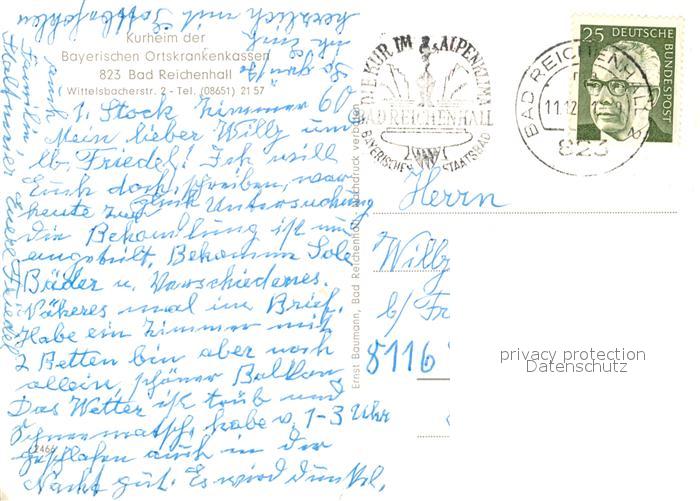 Kurheim der
Bayerischen Ortskrankenkassen
823 Bad Reichenhall
Wittelsbacherstr. 2 - Tel. (08651) 21 57
1. Stock Zimmer 60
Mein lieber Willy und
lb. Friedel! Ich will
Euch doch schreiben, war
heute zur Untersuchung
die Behandlung ist nun
eingeteilt. Bekomme Sole
Bäder u. Verschiedenes.
Näheres mal im Brief.
Habe ein Zimmer mit
2 Betten bin aber noch
allein, schöner Balkon
Das Wetter ist trüb und
Schneematsch, habe v. 1-3 Uhr
geschlafen auch in der
Nacht gut. Es wird dunkel.
herzlich mit
Familie
Eure Friedel
DIE KUR IM ALPENKLIMA
BAD REICHENHALL
BAYERISCHES STAATSBAD
BAD REICHENHALL
11.12
823
25 DEUTSCHE
BUNDESPOST
Herrn
Willy
b/ Fr
8116
Ernst Baumann, Bad Reichenhall, Nachdruck verboten
privacy protection
Datenschutz